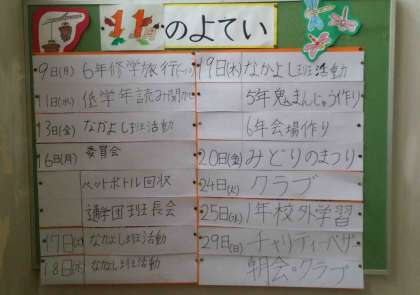 11月のよてい
9日(月) 6年修学旅行(~10)
11日(水) 低学年読み聞かせ
13日(金) なかよし班活動
16日(月) 委員会
ペットボトル回収
通学団班長会
17日(火) なかよし班活動
18日(水) なかよし班活動
19日(木) なかよし班活動
5年鬼まんじゅう作り
6年会場作り
20日(金) みどりのまつり
24日(火) クラブ
25日(水) 1年校外学習
29日(日) チャリティーバザー
朝会・クラブ